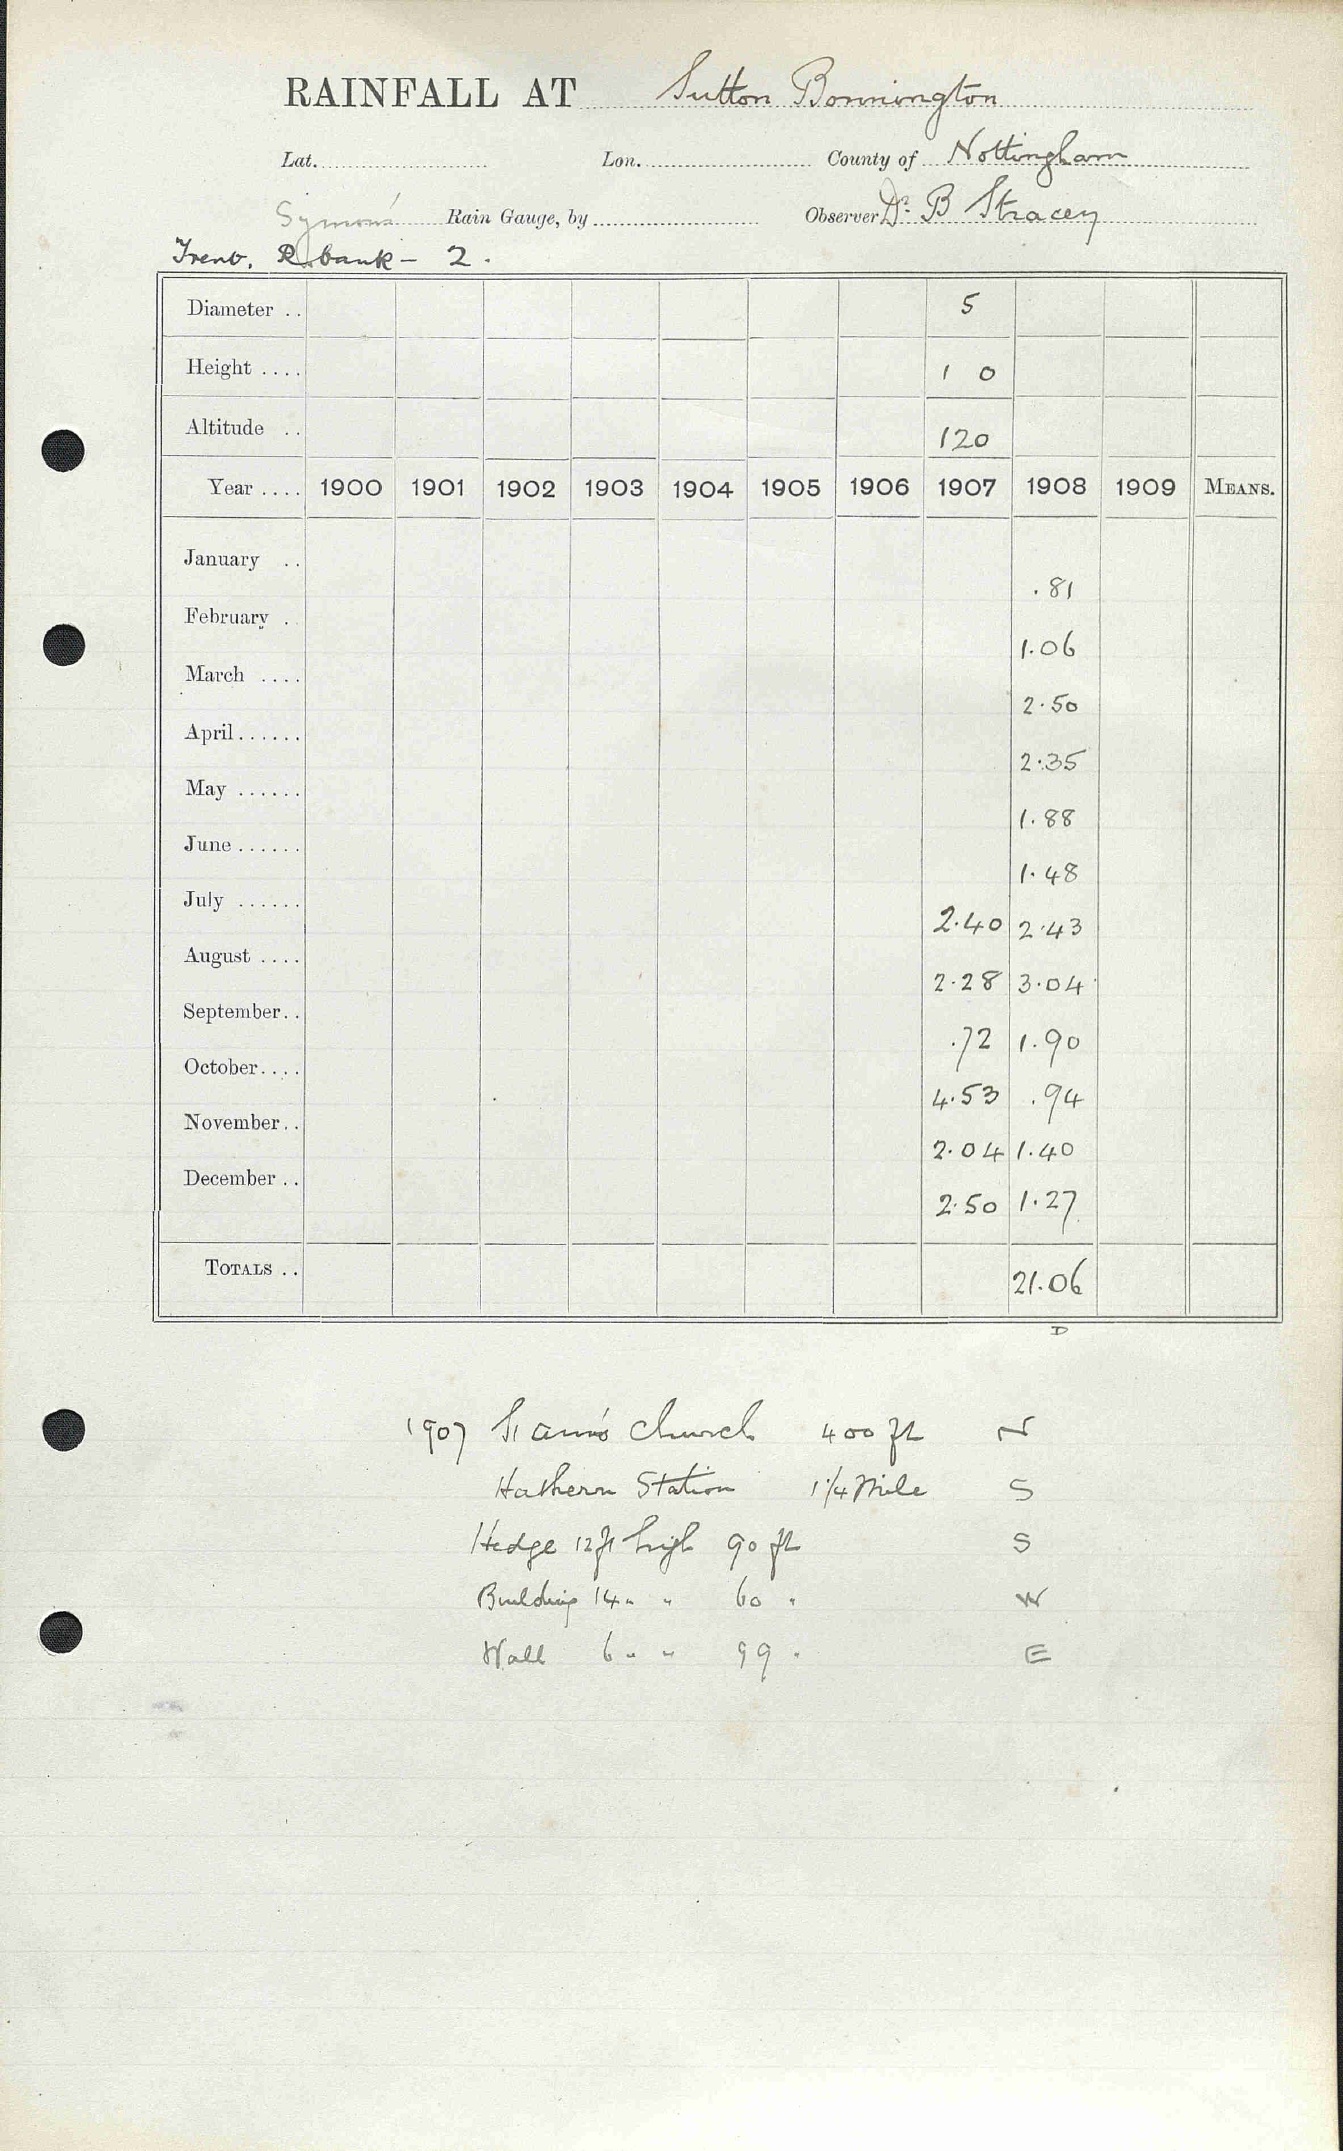 RAINFALL AT Sutton Bonnington
Lat. Lon. County of Nottingham
Symons' Rain Gauge, by Observer Dr. B Stracey
Trent. R. bank - 2.
Diameter .. 5
Height .... 1 0
Altitude .. 120
Year .... 1900 1901 1902 1903 1904 1905 1906 1907 1908 1909 MEANS.
January .. .81
February . 1.06
March .... 2.50
April...... 2.35
May ...... 1.88
June...... 1.48
July ...... 2.40 2.43
August .... 2.28 3.04
September.. .72 1.90
October.... 4.53 .94
November.. 2.04 1.40
December .. 2.50 1.27
TOTALS .. 21.06
D
1907 St Ann's Church 400 ft N
Hathern Station 1 1/4 Mile S
Hedge 12 ft high 90 ft S
Building 14 " " 60 " W
Wall 6 " " 99 " E